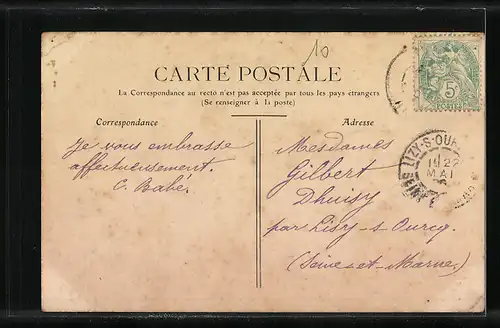 10
CARTE POSTALE
La Correspondance au recto n'est pas acceptée par tous les pays étrangers
(Se renseigner à la poste)
Correspondance
Adresse
Je vous embrasse
affectueusement.
C. Babé.
Mesdames
Gilbert
Dhuisy
par Lisy-s-Ourcq
(Seine-et-Marne)
5c
POSTES
LIZY-S-OURCQ
22
MAI